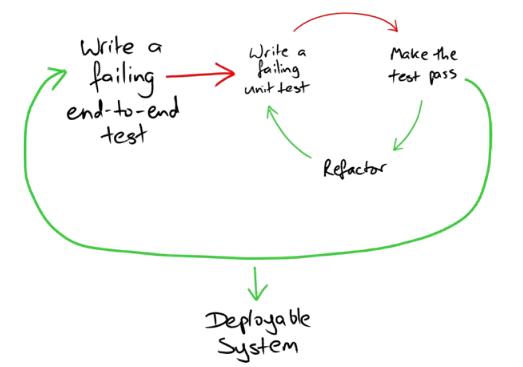 Write a
failing
end-to-end
test
Write a
failing
unit test
Make the
test pass
Refactor
Deployable
System